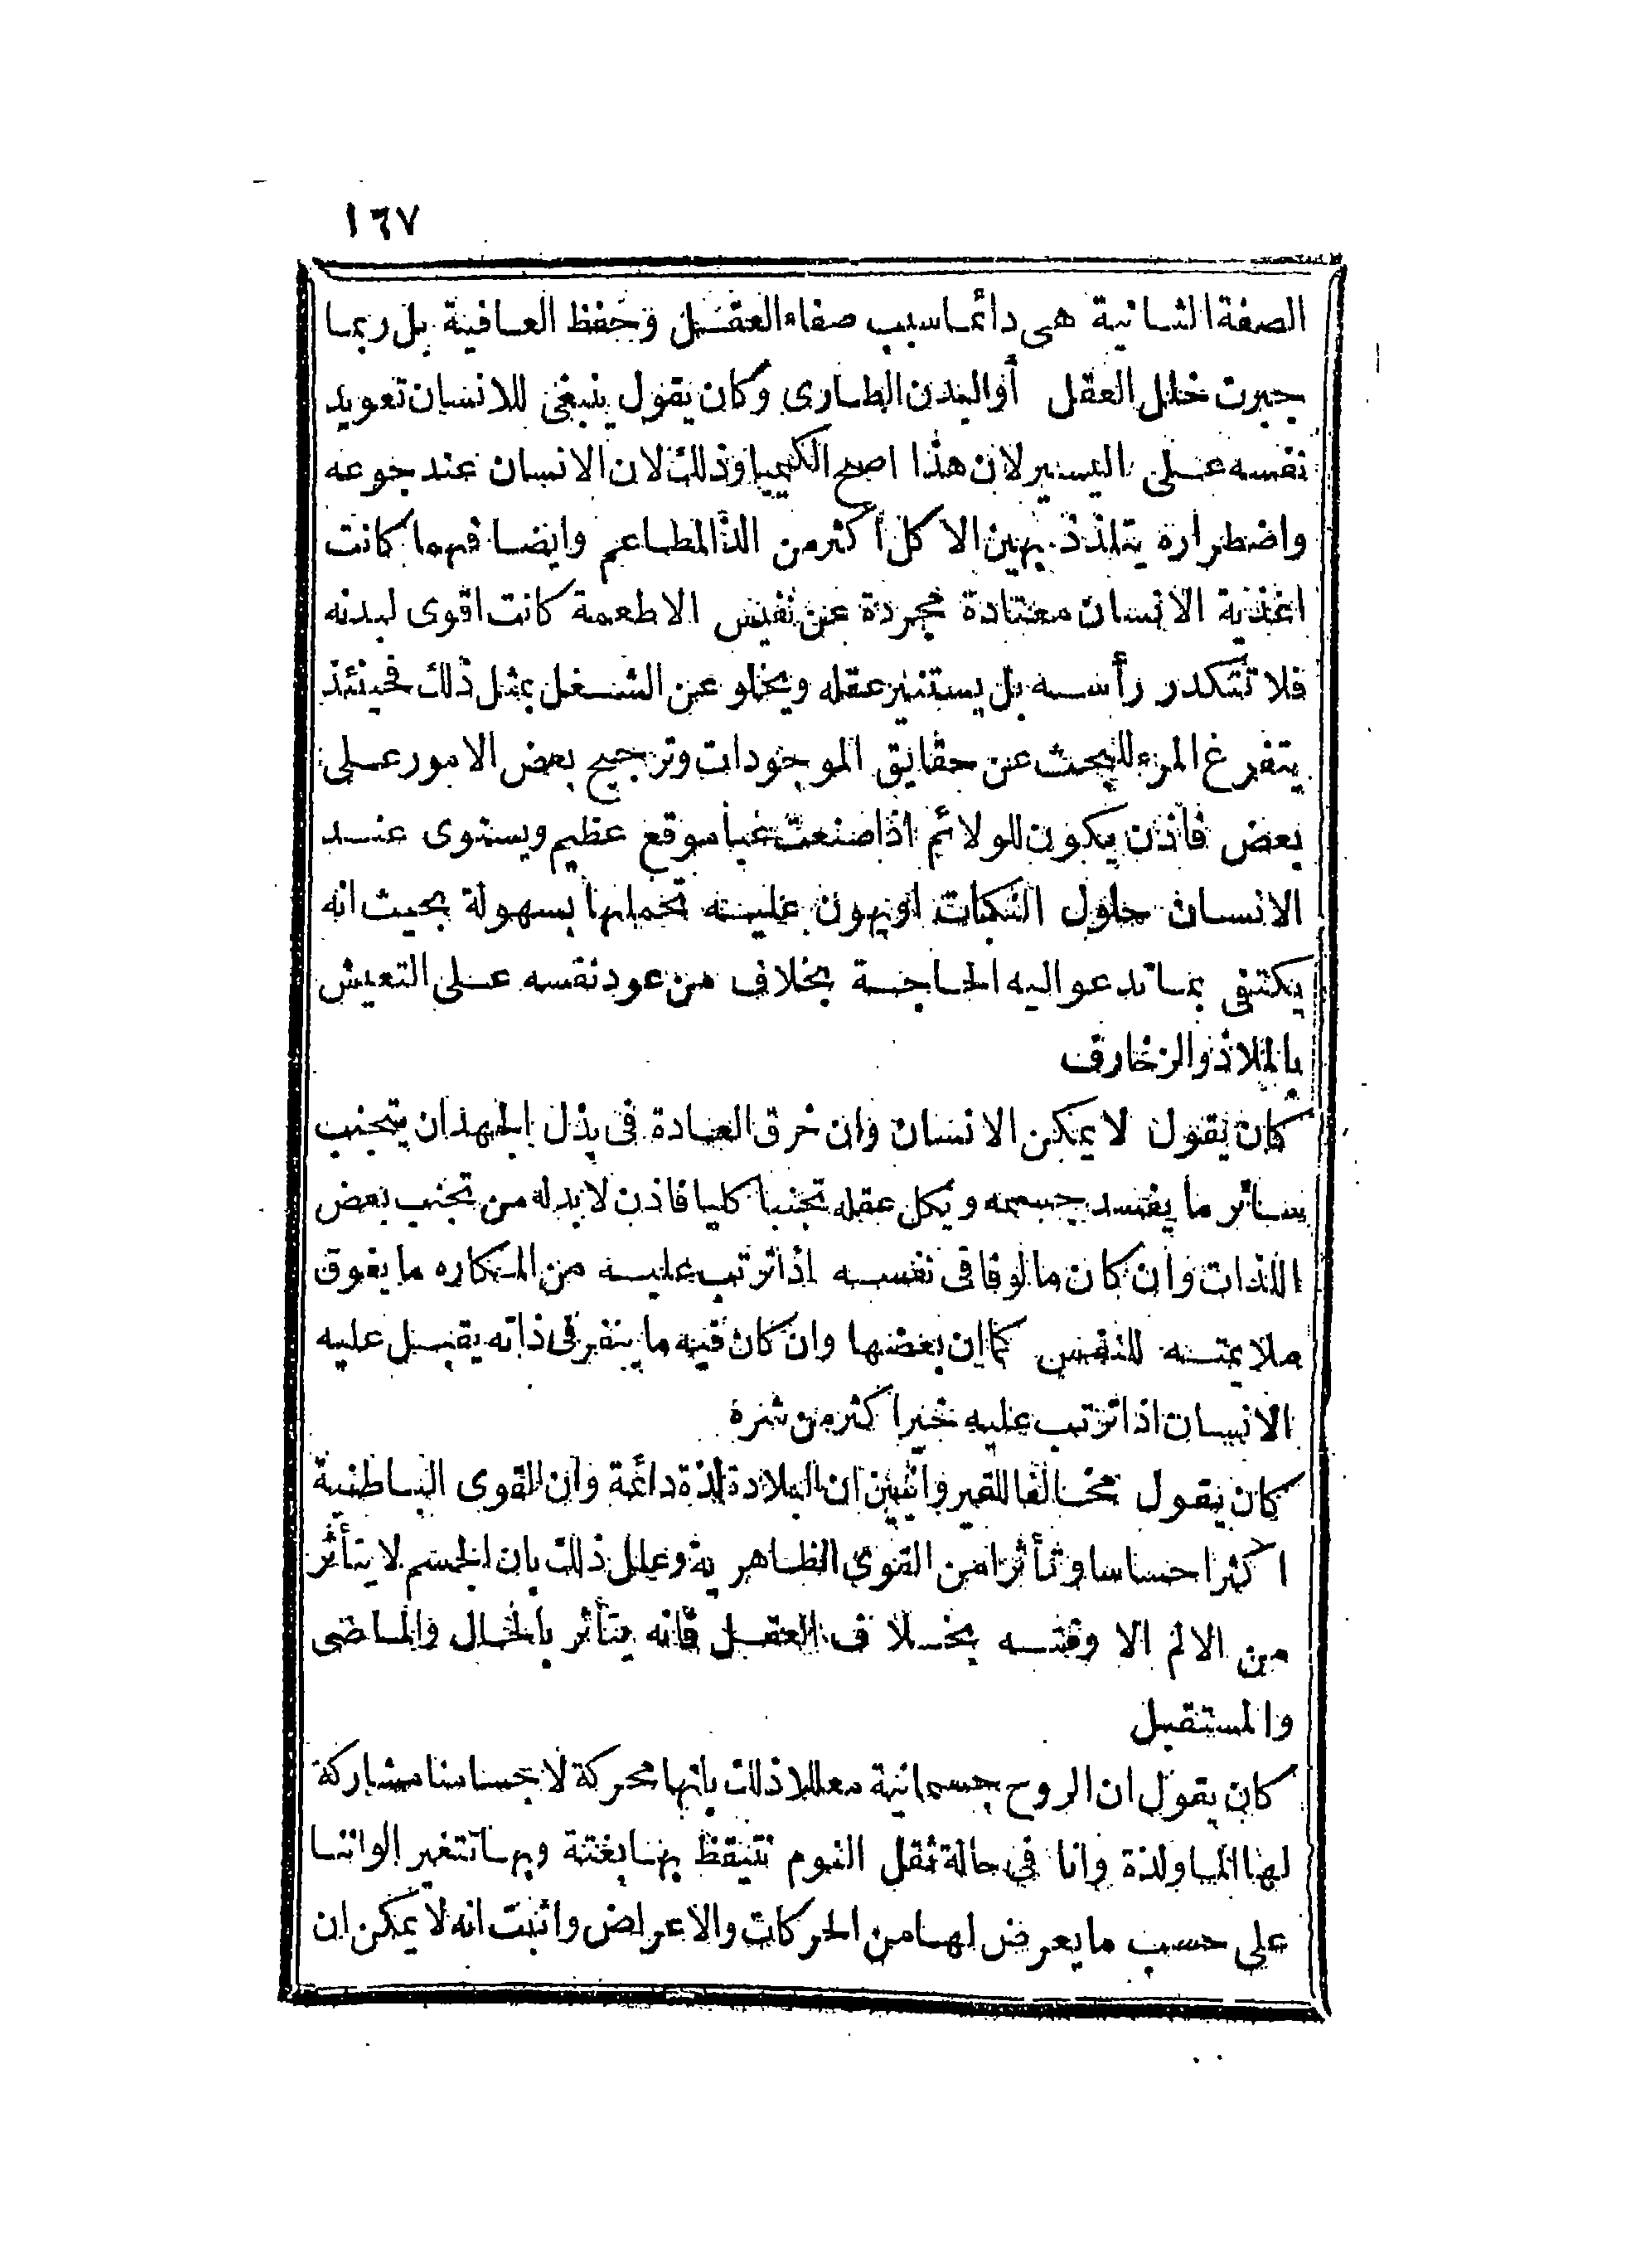 ١٦٧
الصفة الثانية هى دائما سبب صفاء العقل وحفظ العافية بل ربما
جبرت خلل العقل أو البدن الطارى وكان يقول ينبغى للانسان تعويد
نفسه على اليسير لان هذا اصح الكيميا وذلك لان الانسان عند جوعه
واضطراره يتلذذ بهين الاكل أكثر من الذ المطاعم وايضا فهما كانت
اغذية الانسان معتادة مجردة عن نفيس الاطعمة كانت اقوى لبدنه
فلا تتكدر رأسه بل يستنير عقله ويخلو عن الشغل بمثل ذلك فحينئذ
يتفرغ المرء للبحث عن حقايق الموجودات وترجيح بعض الامور على
بعض فاذن يكون للولائم اذا صنعت غبا موقع عظيم ويستوى عند
الانسان حلول النكبات او يهون عليه تحملها بسهولة بحيث انه
يكتفى بما تدعو اليه الحاجة بخلاف من عود نفسه على التعيش
بالملاذ والزخارف
كان يقول لا يمكن الانسان وان خرق العادة فى بذل الجهد ان يتجنب
سائر ما يفسد جسمه ويكل عقله تجنبا كليا فاذن لا بد له من تجنب بعض
اللذات وان كان مالوفا فى نفسه اذا ترتب عليه من المكاره ما يفوق
ملايمته للنفس كما ان بعضها وان كان فيه ما ينفر فى ذاته يقبل عليه
الانسان اذا ترتب عليه خير اكثر من شره
كان يقول مخالفا للقيروانيين ان البلادة لذة دائمة وان القوى الباطنية
اكثر احساسا وتأثرا من القوى الظاهرية وعلل ذلك بان الجسم لا يتأثر
من الالم الا وقته بخلاف العقل فانه يتأثر بالحال والماضى
والمستقبل
كان يقول ان الروح جسمانية معللا ذلك بانها محركة لاجسامنا مشاركة
لها الما ولذة وانا فى حالة ثقل النوم نتيقظ بها بغتة وبها تتغير الواننا
على حسب ما يعرض لها من الحركات والاعراض واثبت انه لا يمكن ان